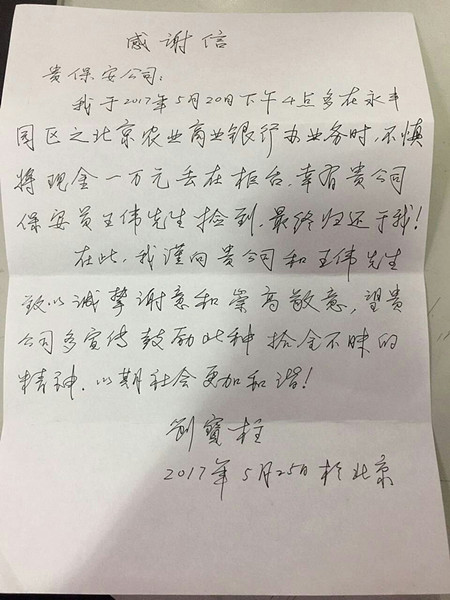 感谢信
贵保安公司:
我于2017年5月20日下午4点多在永丰
园区之北京农业商业银行办业务时,不慎
将现金一万元丢在柜台,幸有贵公司
保安员王伟先生捡到,最终归还于我!
在此,我谨向贵公司和王伟先生
致以诚挚谢意和崇高敬意,望贵
公司多宣传鼓励此种拾金不昧的
精神,以期社会更加和谐!
劉寶柱
2017年5月25日於北京